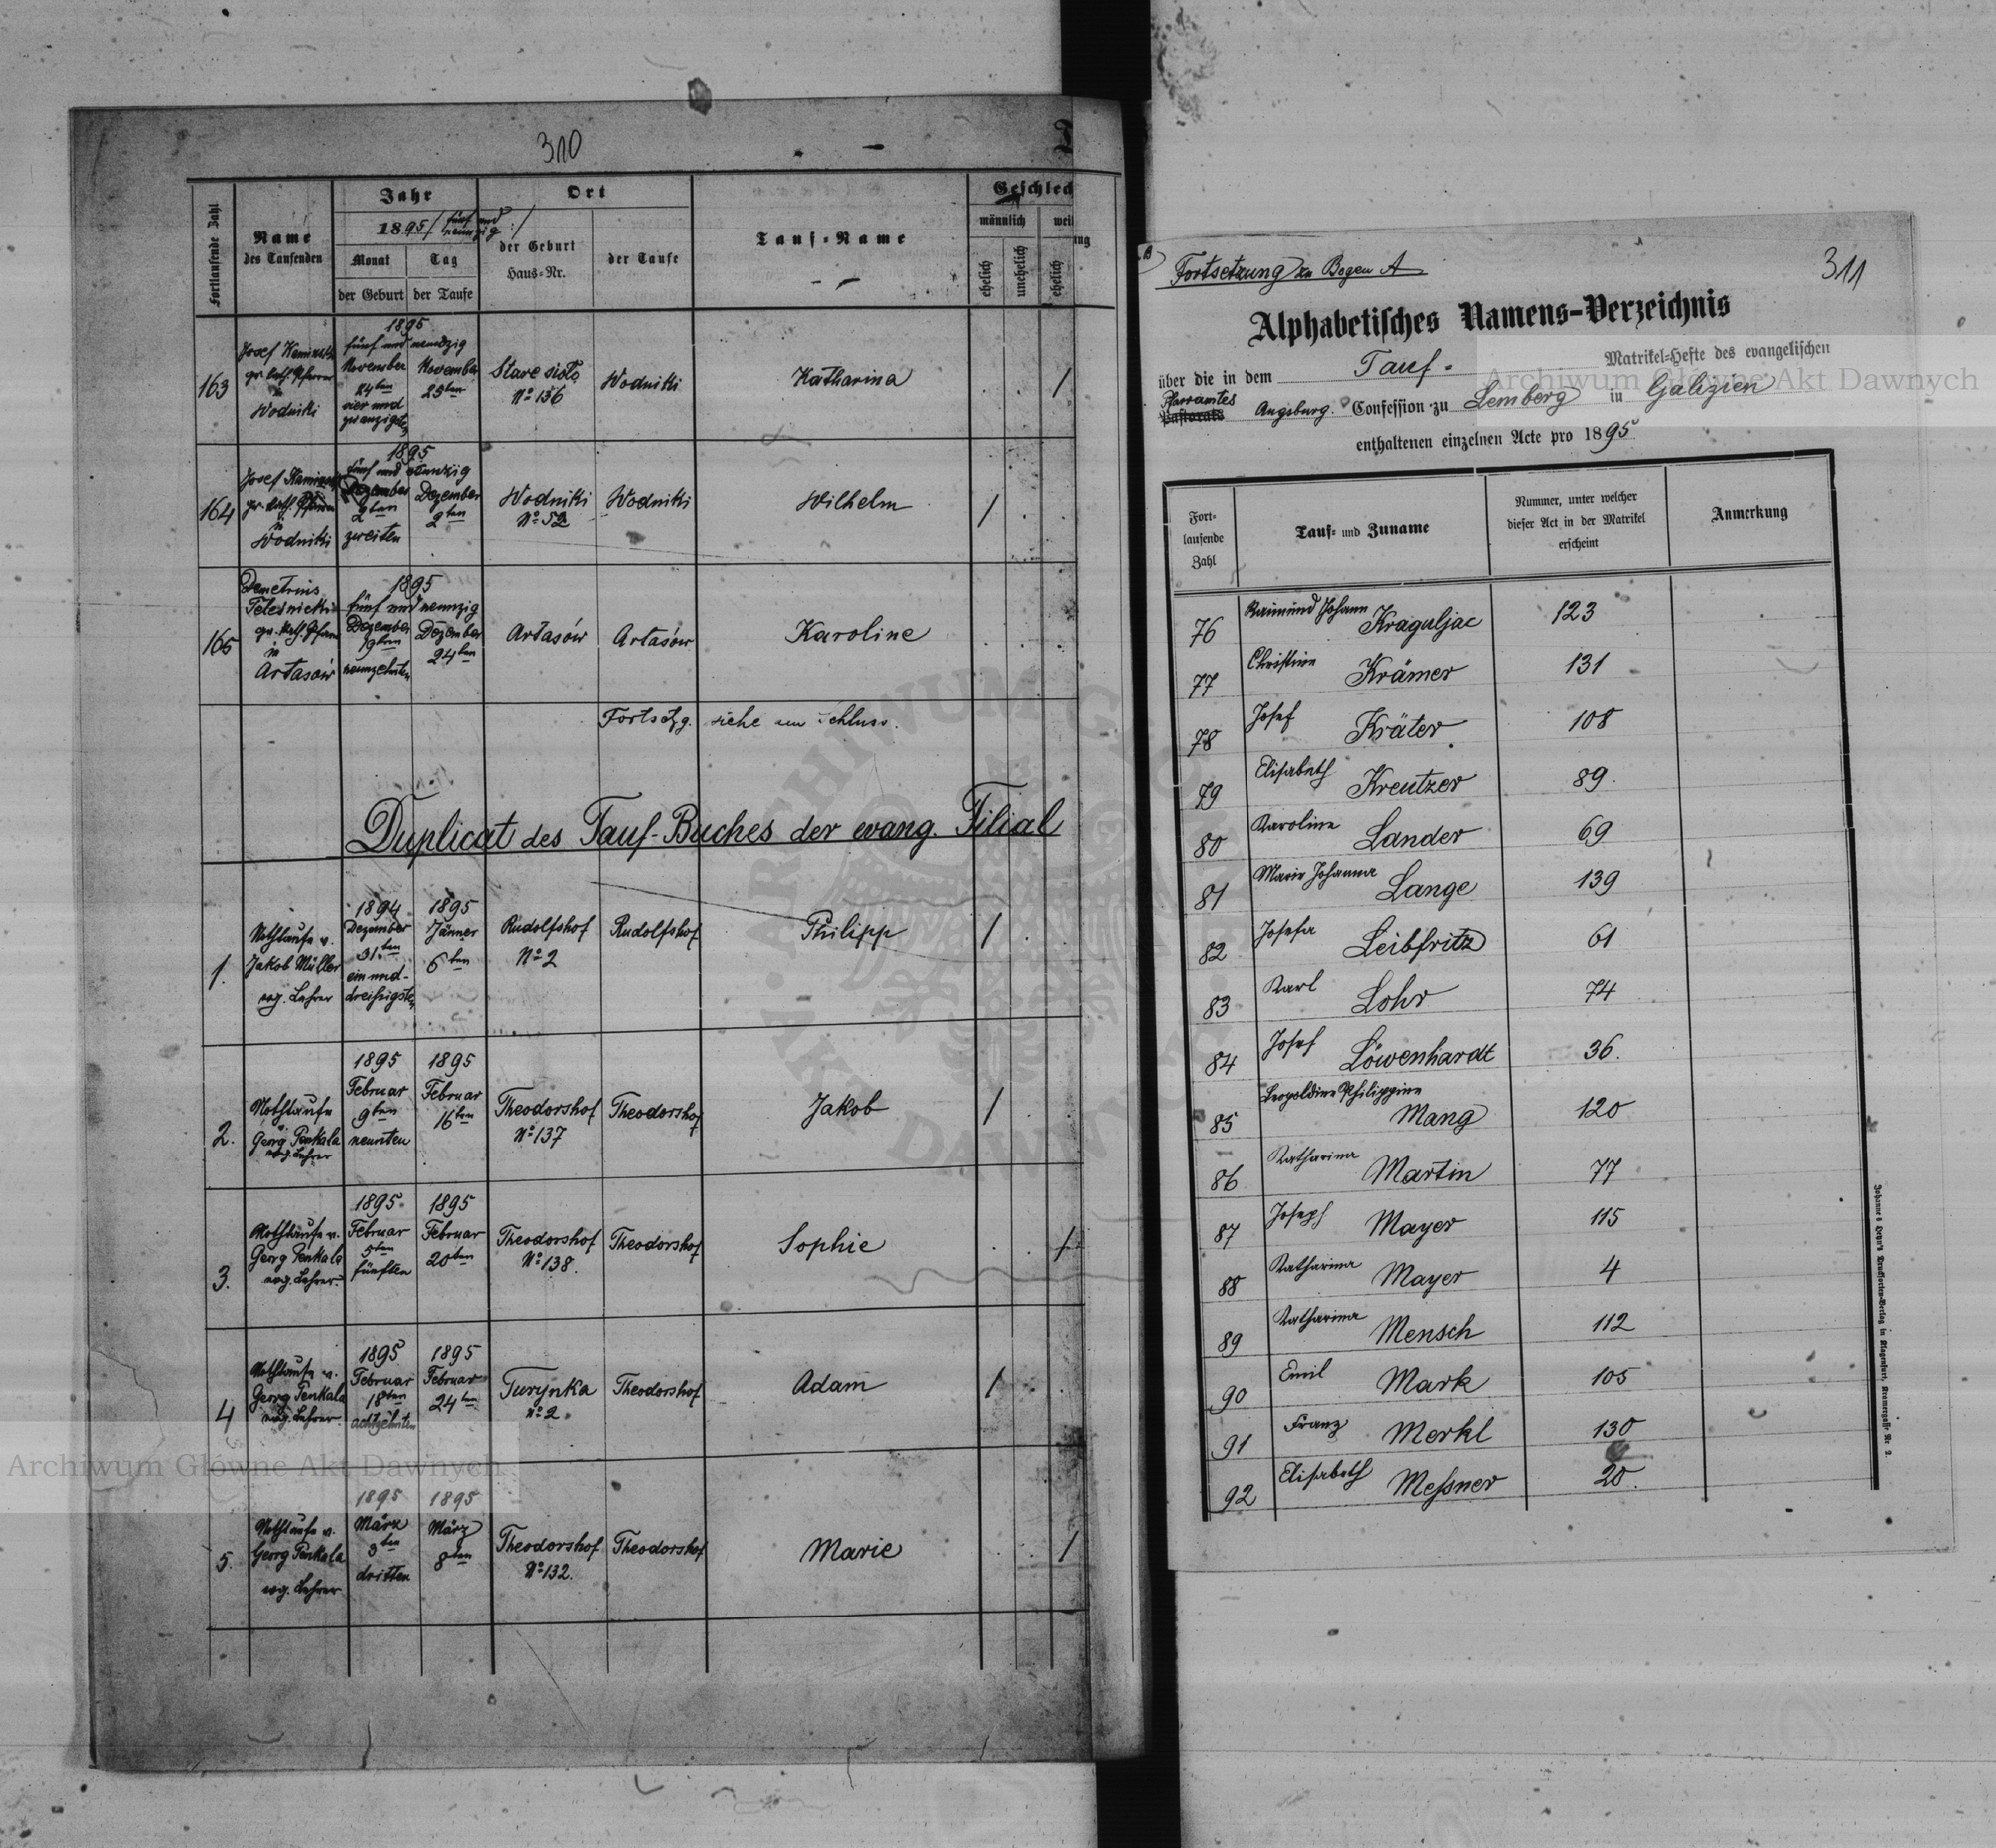 310
Fortlaufende Zahl
Name
des Taufenden
Jahr
1895 /: fünf und neunzig :/
Monat
der Geburt
Tag
der Taufe
Ort
der Geburt
Haus-Nr.
der Taufe
Tauf-Name
Geschlec
männlich
wei
ehelich
unehelich
ehelich
163
Josef
gr. kath. Pfarrer
in
Wodniki
1895
fünf und neunzig
November
24ten
vier und
zwanzigsten
November
25ten
Stare sioło
No 136
Wodniki
Katharina
/
164
Josef
gr. kath. Pfarrer
in
Wodniki
1895
fünf und neunzig
Dezember
2ten
zweiten
Dezember
2ten
Wodniki
No 52
Wodniki
Wilhelm
/
165
Demetrius
gr. kath. Pfarrer
in
Artasów
1895
fünf und neunzig
Dezember
19ten
neunzehnten
Dezember
24ten
Artasów
Artasów
Karoline
Fortsetzg. siehe am Schluss.
Duplicat des Tauf-Buches der evang. Filial
1.
Nothtaufe v.
Jakob Müller
evg. Lehrer
1894
Dezember
31.ten
ein und-
dreißigsten
1895
Jänner
6ten
Rudolfshof
No 2
Rudolfshof
Philipp
/
2.
Nothtaufe
Georg Penkala
evg. Lehrer
1895
Februar
9ten
neunten
1895
Februar
16ten
Theodorshof
No 137
Theodorshof
Jakob
/
3.
Nothtaufe v.
Georg Penkala
evg. Lehrer
1895
Februar
5ten
fünften
1895
Februar
20ten
Theodorshof
No 138.
Theodorshof
Sophie
/
4
Nothtaufe v.
Georg Penkala
evg. Lehrer
1895
Februar
18ten
achtzehnten
1895
Februar
24ten
Turynka
No 2.
Theodorshof
Adam
/
5.
Nothtaufe v.
Georg Penkala
evg. Lehrer
1895
März
3ten
dritten
1895
März
8ten
Theodorshof
No 132.
Theodorshof
Marie
/
Fortsetzung zu Bogen A
311
Alphabetisches Namens-Verzeichnis
über die in dem Tauf- Matrikel-Hefte des evangelischen
Pfarramtes
Pastorats Augsburg. Confession zu Lemberg in Galizien
enthaltenen einzelnen Acte pro 1895
Fort-
laufende
Zahl
Tauf- und Zuname
Nummer, unter welcher
dieser Act in der Matrikel
erscheint
Anmerkung
76 Raimund Johann Kraguljac 123
77 Christine Krämer 131
78 Josef Kräter 108
79 Elisabeth Kreutzer 89.
80 Karoline Lander 69
81 Marie Johanna Lange 139
82 Josefa Leibfritz 61
83 Karl Lohr 74
84 Josef Löwenhardt 36.
85 Leopoldine Philippine Mang 120
86 Katharina Martin 77
87 Joseph Mayer 115
88 Katharina Mayer 4
89 Katharina Mensch 112
90 Emil Mark 105
91 Franz Merkl 130
92 Elisabeth Meßner 20.
Johannes Heyn's Drucksorten-Verlag in Klagenfurt, Kramergasse Nr. 2.
Archiwum Główne Akt Dawnych
Archiwum Główne Akt Dawnych
ARCHIWUM GŁÓWNE
AKT DAWNYCH